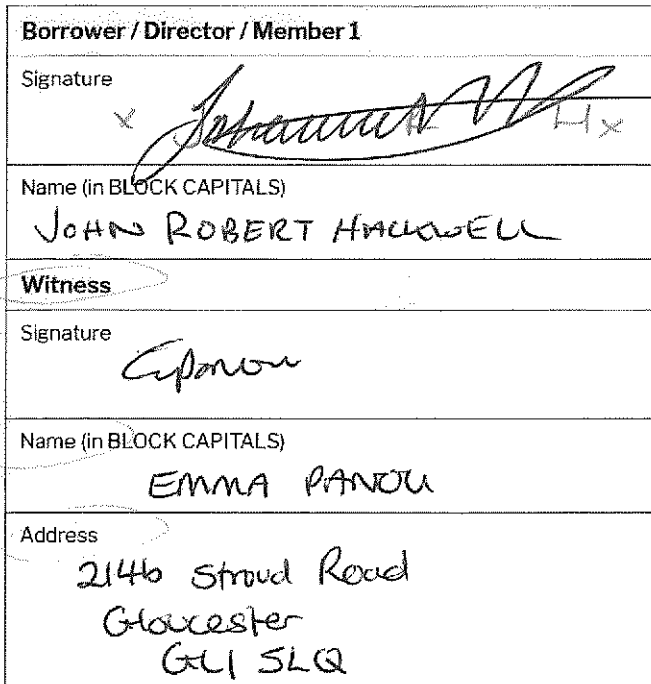 Borrower / Director / Member 1
Signature
x H x
Name (in BLOCK CAPITALS)
JOHN ROBERT
Witness
Signature
Name (in BLOCK CAPITALS)
EMMA PANOU
Address
214b Stroud Road
Gloucester
GL1 5LQ